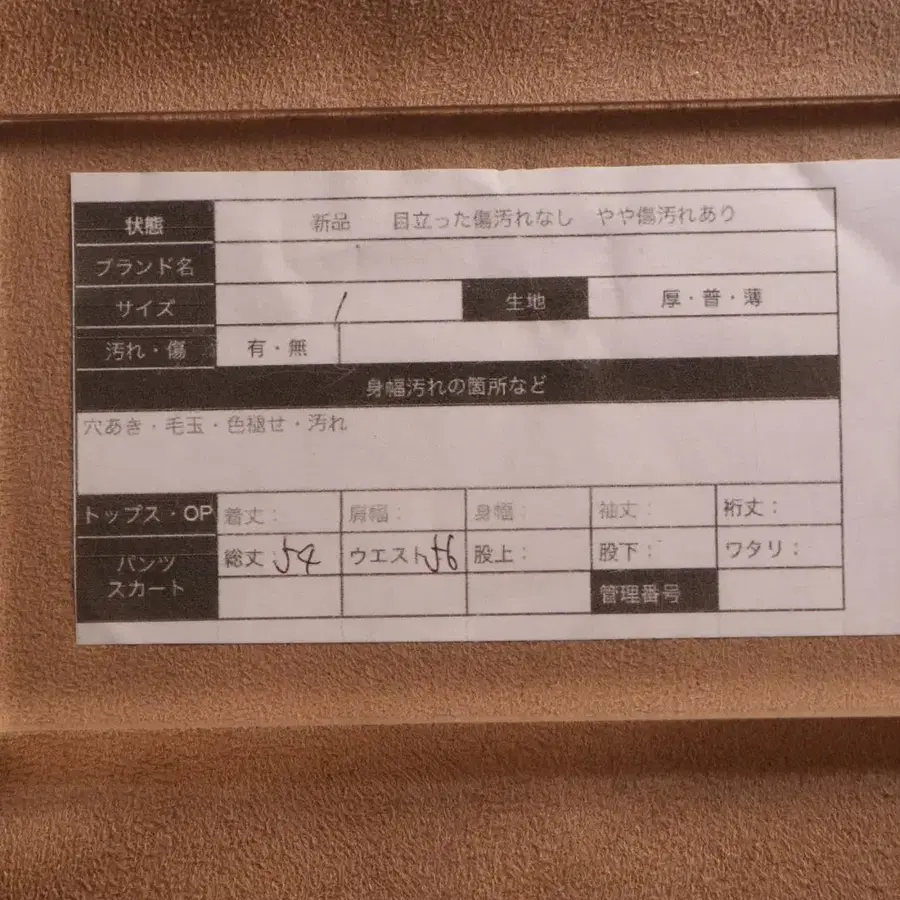 状態 新品 目立った傷汚れなし やや傷汚れあり
ブランド名
サイズ / 生地 厚・普・薄
汚れ・傷 有・無
身幅汚れの箇所など
穴あき・毛玉・色褪せ・汚れ
トップス・OP 着丈: 肩幅: 身幅: 袖丈: 裄丈:
パンツ 総丈:54 ウエスト56 股上: 股下: ワタリ:
スカート 管理番号